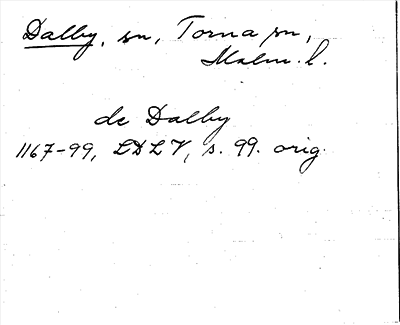 Dalby, sn, Torna sn,
Malm. l.
de Dalby
1167-99, LDLV, s. 99. orig.